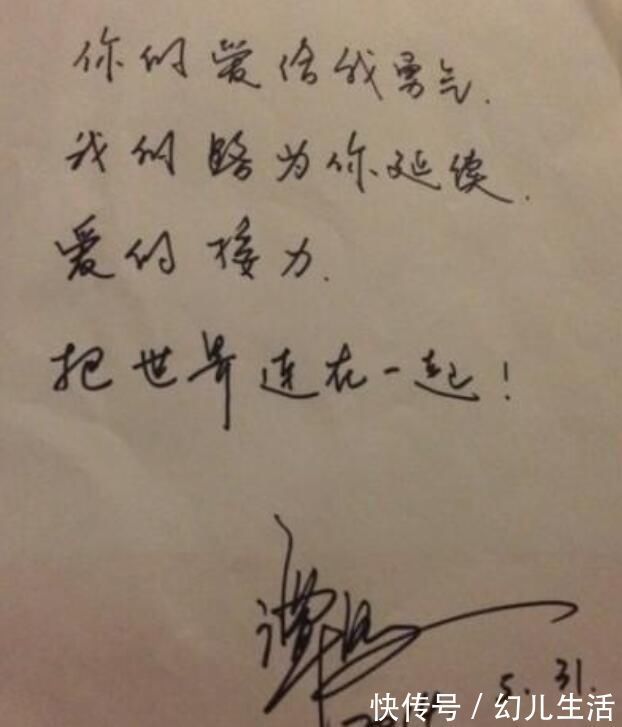 你们的爱给我勇气.
我们的路为你延续.
爱的接力.
把世界连在一起!
谭
5.31.
快传号/幻儿生活